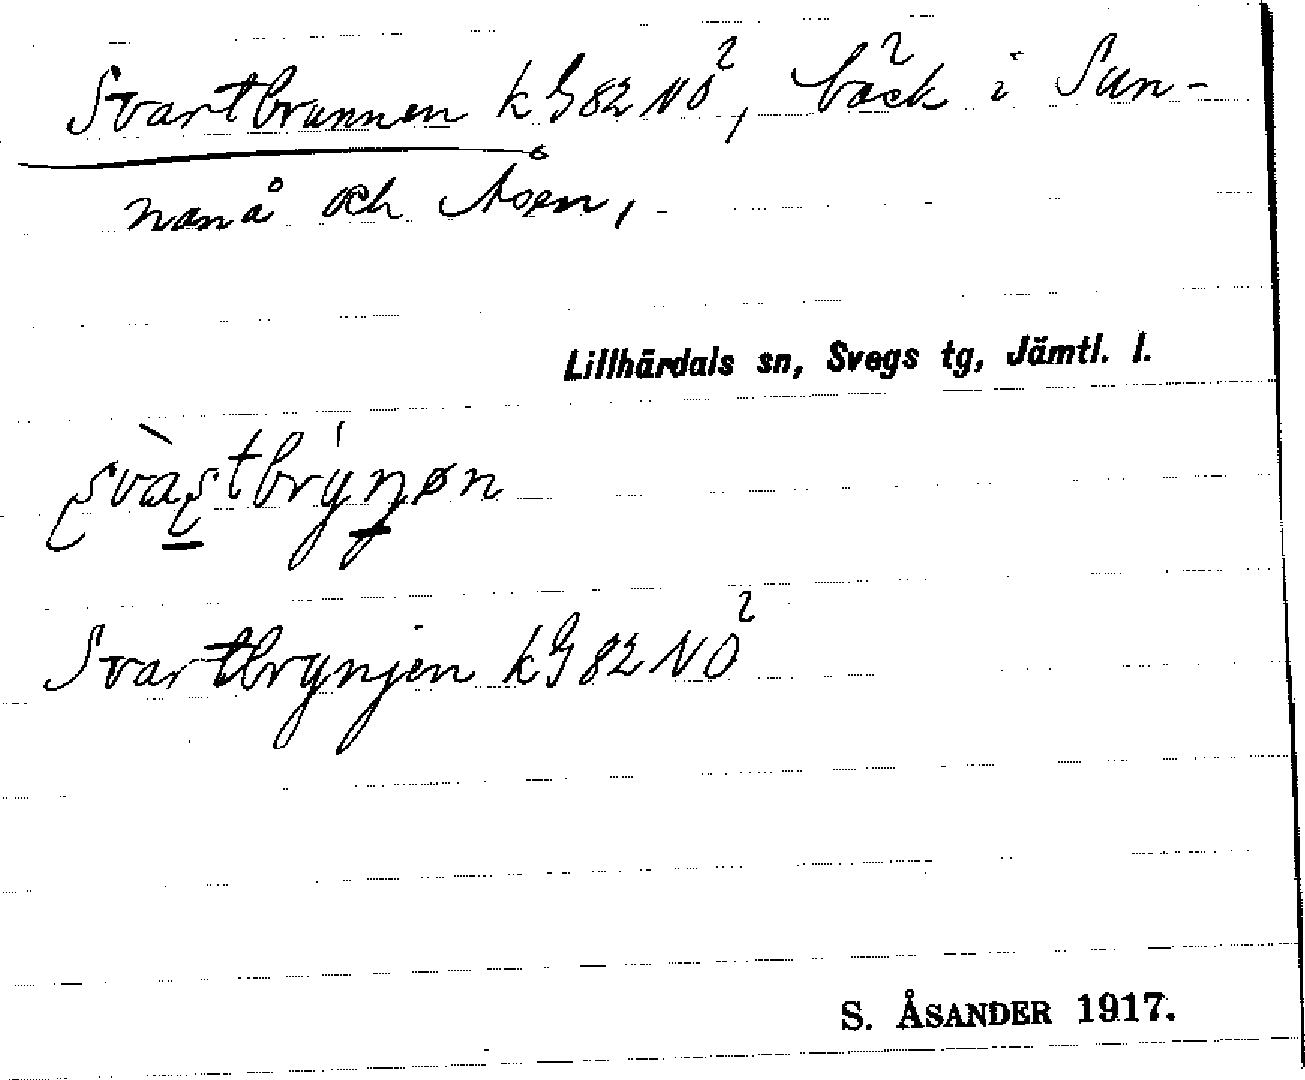 Svartbrunnen kG82NO², bäck i Sun-
nanå och Åsen,
Lillhärdals sn, Svegs tg, Jämtl. l.
Svartbrynjen kG82NO²
S. ÅSANDER 1917.